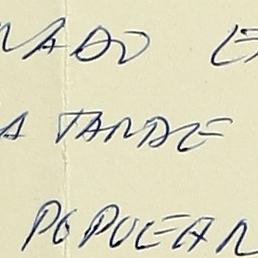 NADO E
A TARDE
POPULAR